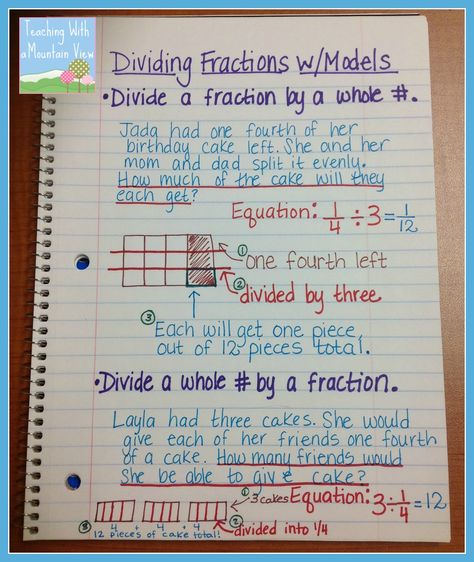 Teaching With
a Mountain View
Dividing Fractions W/Models
• Divide a fraction by a whole #.
Jada had one fourth of her
birthday cake left. She and her
mom and dad split it evenly.
How much of the cake will they
each get?
Equation: 1/4 ÷ 3 = 1/12
① one fourth left
② divided by three
③ Each will get one piece,
out of 12 pieces total.
• Divide a whole # by a fraction.
Layla had three cakes. She would
give each of her friends one fourth
of a cake. How many friends would
she be able to give cake?
① 3 cakes Equation: 3 ÷ 1/4 = 12
② divided into 1/4
③ 4 + 4 + 4
12 pieces of cake total!